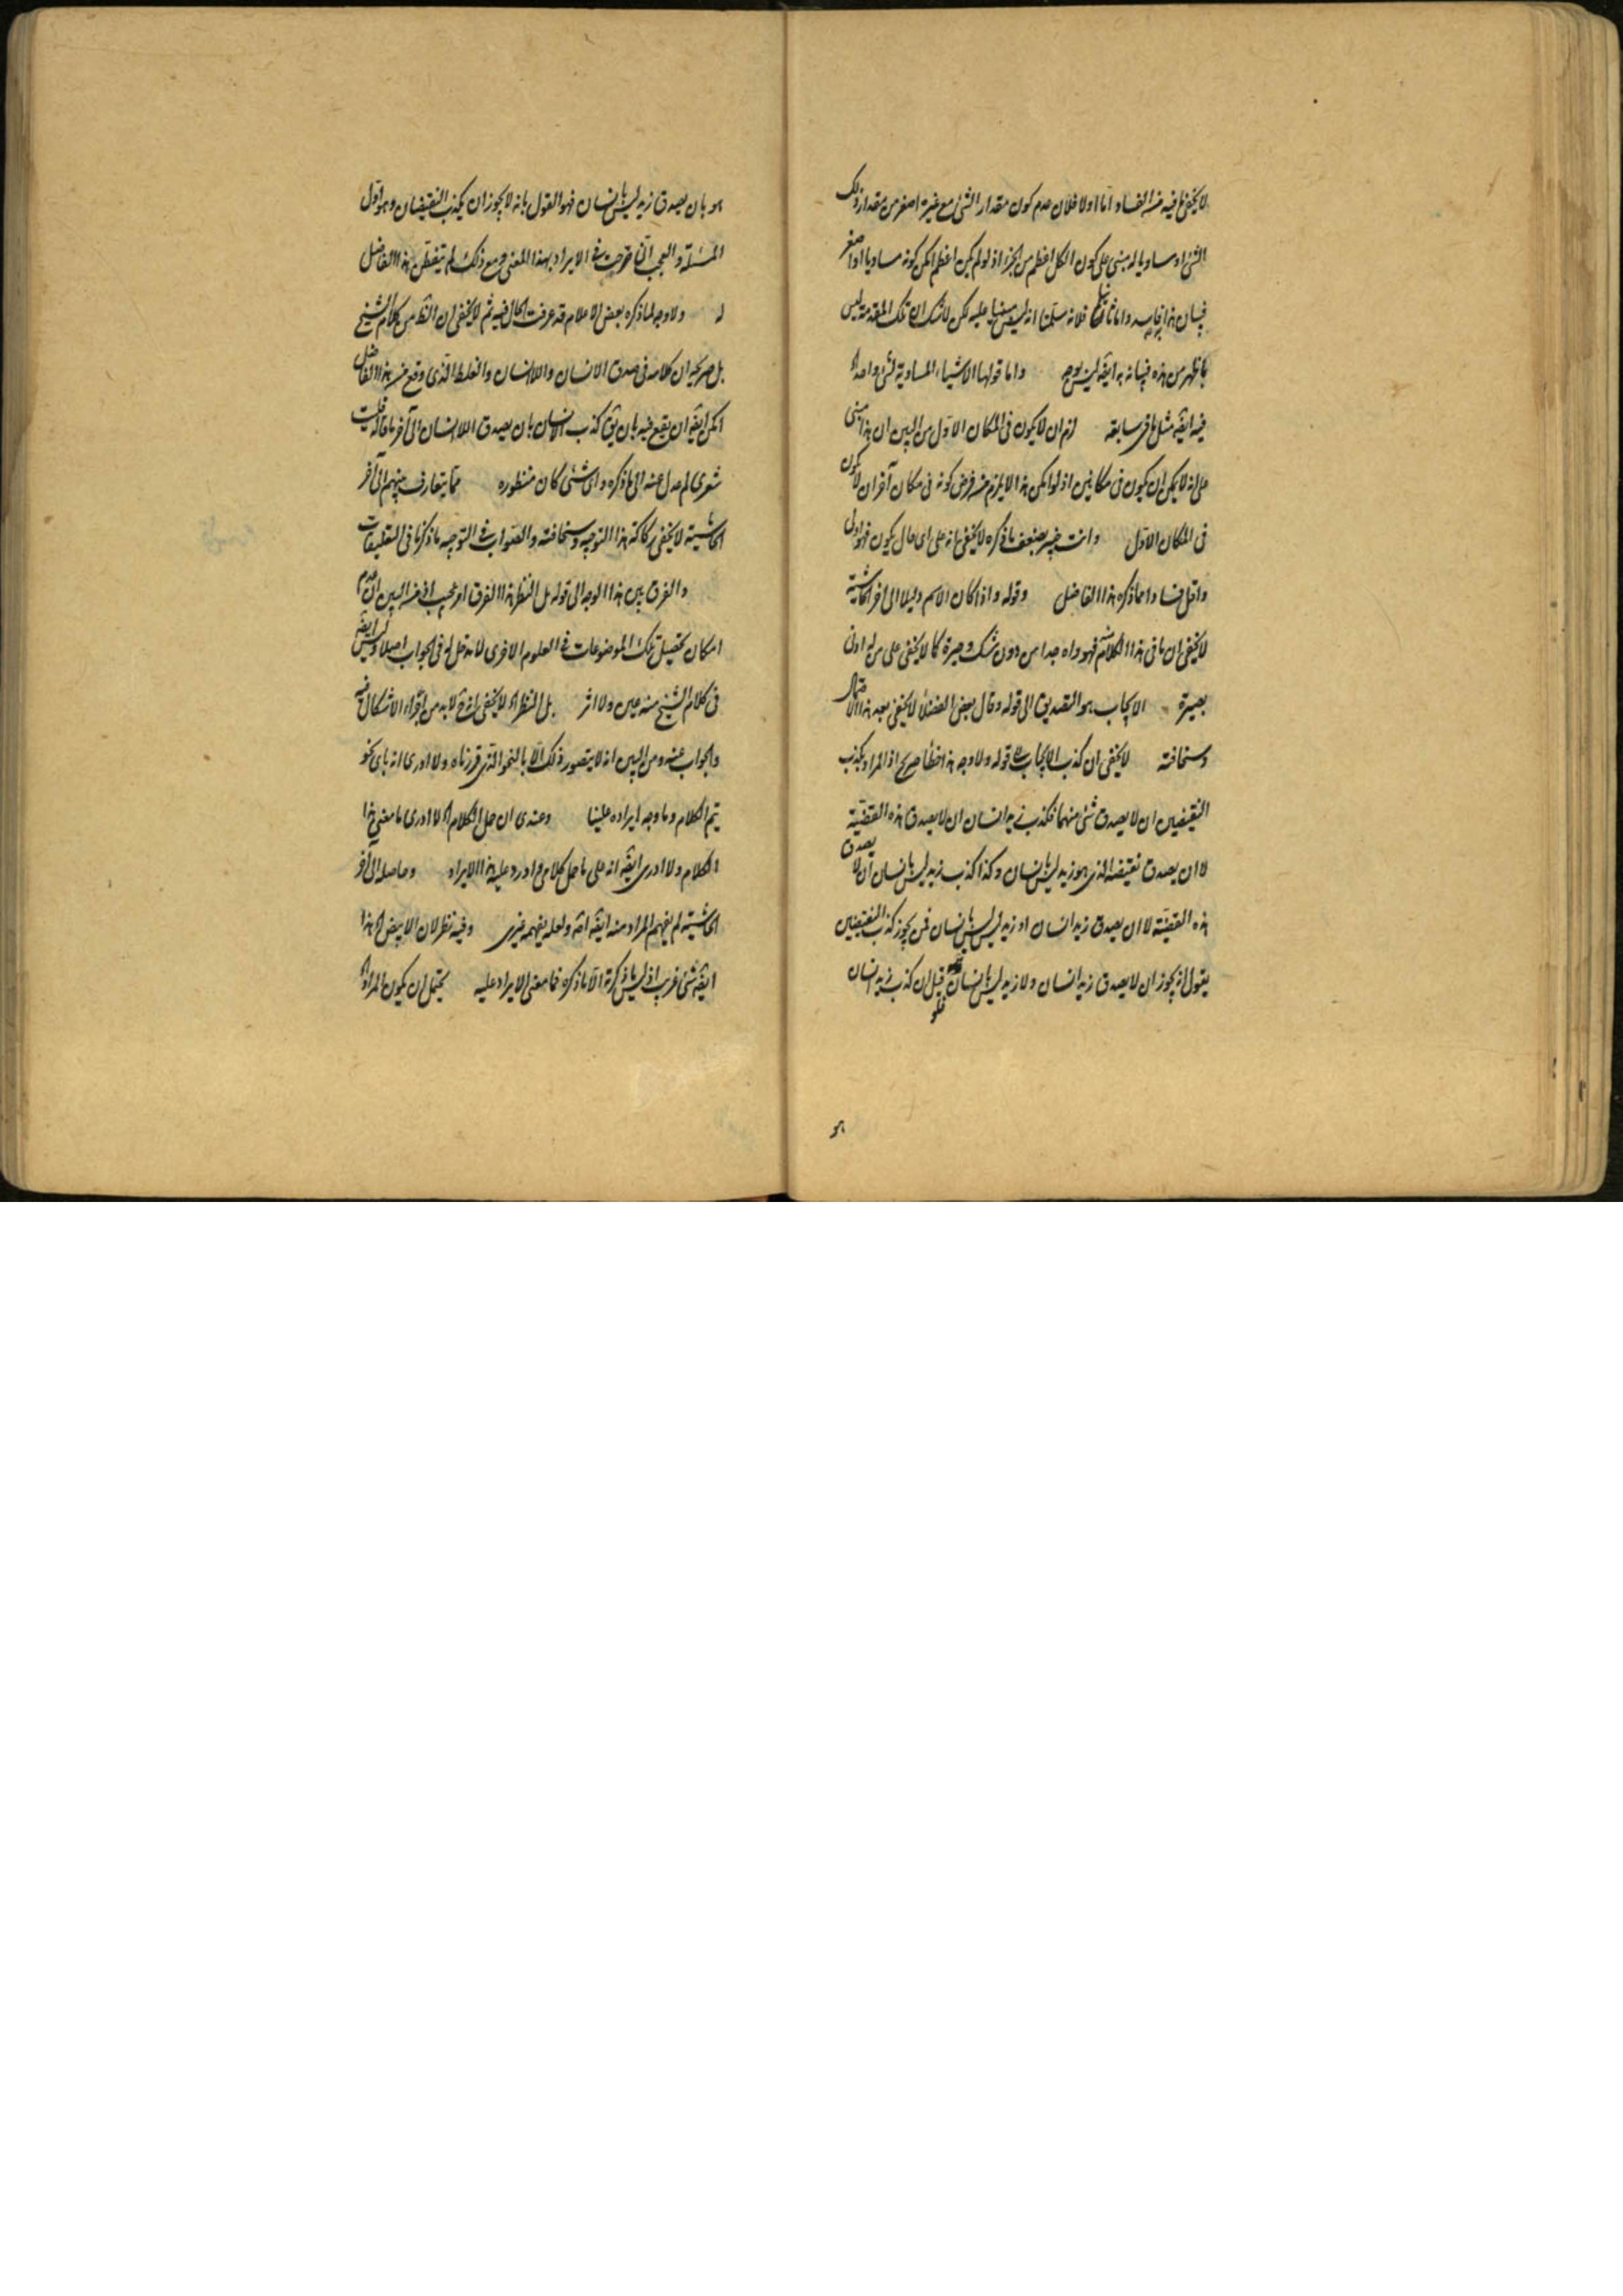 لا يخفى ما فيه من الفساد اما اولا فلان عدم كون مقدار الشئ مع غيره اصغر من مقدار ذلك
الشئ او مساويا له مبنى على كون الكل اعظم من الجزء اذ لو لم يكن اعظم امكن كونه مساويا او اصغر
فبيان هذا به واما ثانيا فلانه سلمنا انه ليس مبنيا عليه لكن لا شك ان تلك المقدمة ليس
باظهر من هذه فبيانه بها ايضا ليس بوجه واما قولها الاشياء المساوية لشئ واحد اه
فيه ايضا مثل ما فى سابقه لزم ان لا يكون فى المكان الاول من البين ان هذا مبنى
على انه لا يمكن ان يكون فى مكانين اذ لو امكن هذا لا يلزم من فرض كونه فى مكان آخر ان لا يكون
فى المكان الاول وانت خبير بضعف ما ذكره لا يخفى انه على اى حال يكون فهو اولى
واقل فسادا مما ذكره هذا الفاضل وقوله واذا كان الاسم دليلا الى اخر الحاشية
لا يخفى ان ما فى هذا الكلام فهو واه جدا من دون شك وحيرة كما لا يخفى على من له ادنى
بصيرة الايجاب هو التصديق الى قوله وقال بعض الفضلاء لا يخفى بعد هذا الاحتمال
وسخافته لا يخفى ان كذب الايجاب الى قوله ولا وجه هذا خطأ صريح اذ المراد بكذب
النقيضين ان لا يصدق شئ منهما فكذب زيد انسان ان لا يصدق هذه القضية
لا ان يصدق نقيضه الذى هو زيد ليس بانسان وكذا كذب زيد ليس بانسان ان لا يصدق
هذه القضية لا ان يصدق زيد انسان او زيد ليس ليس بانسان فمن يجوز كذب النقيضين
يقول انه يجوز ان لا يصدق زيد انسان ولا زيد ليس بانسان فلو قيل ان كذب زيد انسان
هو
هو بان يصدق زيد ليس بانسان فهو القول بانه لا يجوز ان يكذب النقيضان وهو اول
المسئلة والعجب انا صرحت فى الايراد بهذا المعنى ومع ذلك لم يتفطن هذا الفاضل
له ولا وجه لما ذكره بعض الاعلام قد عرفت الحال فيه ثم لا يخفى ان الظ من كلام الشيخ
بل صريحه ان كلامه فى صدق الانسان واللاانسان والغلط الذى وقع من هذا الفاضل
امكن ايضا ان يقع فيه بان يق كذب الانسان بان يصدق اللاانسان الى آخر ما قاله فليت
شعرى لم عدل عنه الى ما ذكره واى شئى كان منظوره مما يتعارف بينهم الى آخر
الحاشية لا يخفى ركاكة هذا التوجيه وسخافته والصواب فى التوجيه ما ذكرنا فى التعليقات
والفرق بين هذا الوجه الى قوله بل النظر هذا الفرق امر عجيب اذ من البين ان عدم
امكان تحصيل تلك الموضوعات فى العلوم الاخرى لا مدخل له فى الجواب اصلا وليس ايضا
فى كلام الشيخ منه عين ولا اثر بل النظر اه لا يخفى انه ح لا بد من اجراء الاشكال فيه
والجواب عنه ومن البين انه لا يتصور ذلك الا بالنحو الذى قررناه ولا ادرى انه باى نحو
يتم الكلام وما وجه ايراده علينا وعندى ان حل الكلام اه لا ادرى ما معنى هذا
الكلام ولا ادرى ايضا انه على ما حمل كلامى ما ورد عليه هذا الايراد وحاصله الى آخر
الحاشية لم يفهم المراد منه ايضا انه ولعله يفهمه غيرى وفيه نظر لان الابيض اه هذا
ايضا شئ غريب اذ ليس ما ذكرته الا ما ذكره فما معنى الايراد عليه يحتمل ان يكون المراد اه